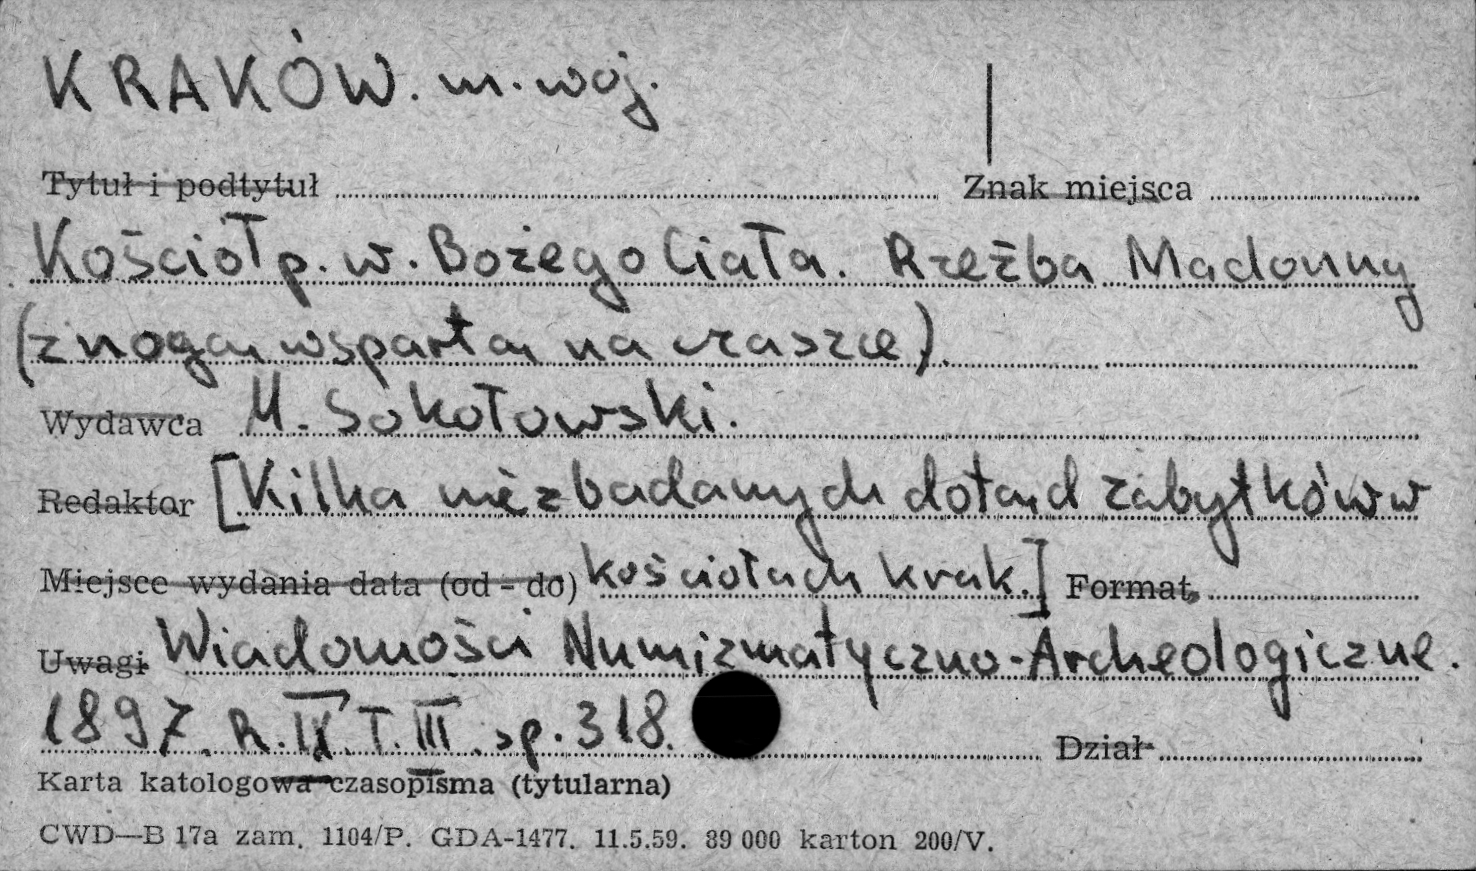 KRAKÓW. m. woj.
Tytuł i podtytuł Znak miejsca
Kościół p. w. Bożego Ciała. Rzeźba Madonny
(z nogą wspartą na czaszce).
Wydawca M. Sokołowski.
Redaktor [Kilka niezbadanych dotąd zabytków w
Miejsce wydania data (od - do) kościołach krak.] Format
Uwagi Wiadomości Numizmatyczno-Archeologiczne.
1897. R. IX. T. III. sp. 318. Dział
Karta katologowa czasopisma (tytularna)
CWD—B 17a zam. 1104/P. GDA-1477. 11.5.59. 89 000 karton 200/V.